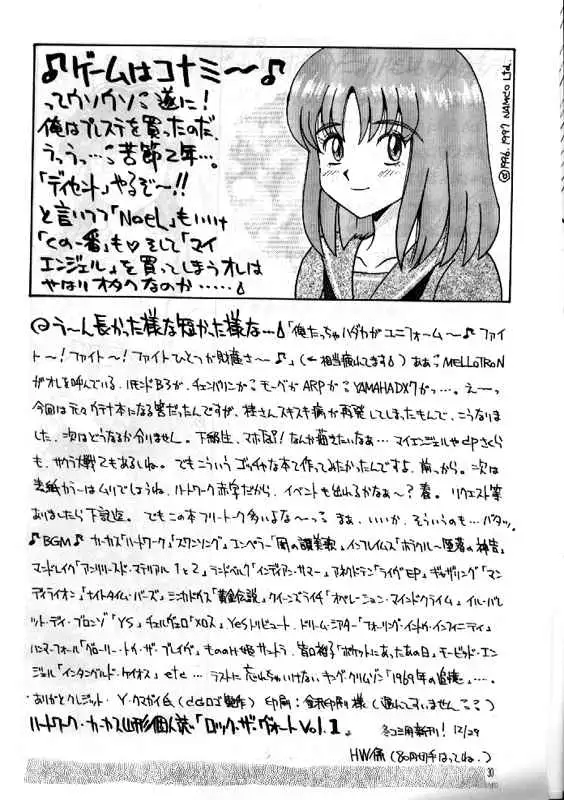 ♪ゲームはコナミ〜♪
ってウソウソ 遂に!
俺はプレステを買ったのだ。
うっうっ…苦節2年…。
「ディセント」やるぞ〜!!
と言いつつ「NOëL」もいいけ
「くの一番」も♡そして「マイ
エンジェル」を買ってしまうオレは
やはりオタクなのか……
©1996, 1997 NAMCO Ltd.
う〜ん長かった様な短かった様な…「俺たっちゃハダカがユニフォーム〜♪ファイ
ト〜!ファイト〜!ファイトひとつが財産さ〜♪」(←相当疲れてます)ああMELLOTRON
がオレを呼んでいる、ハモンドB3が、チェンバリンが モーグが ARPが YAMAHA DX7がっ…。えーっ
今回は元々 本になる筈だったんですが、桂さんスキスキ病が再発してしまったもんで、こうなりま
した、次はどうなるか分りません。下級生、マホ なんか描きたいなぁ…マイエンジェルやepさくら
も、サクラ大戦2もあるしね。でもこういうゴッチャな本て作ってみたかったんですよ、前っから。次は
表紙カラーはムリでしょうね、ハートワーク赤字だから、イベントも出れるかなぁ〜?春。リクエスト等
ありましたら下記迄。でもこの本フリートーク多いよな〜っ まぁ、いいか、そういうのも…バタッ。
♪BGM♪カーカス「ハートワーク」「スワンソング」エンペラー「闇の讃美歌」、インフレイムス「ホラクル〜 の神告」
マンドレイク「アンリリースド・マテリアル1と2」ランドベルク「インディアン・サマー」アネクドテン「ライヴEP」ギャザリング「マン
ディライオン」「ナイトタイム・バーズ」ミンカドウス「黄金伝説」クイーンズライチ「オペレーション・マインドクライム」イル・バレ
ット・ディ・ブロンゾ「YS」チェルヴェロ「メロス」YESトリビュート、ドリーム・シアター「フォーリング・イントゥ・インフィニティ」
ハンマーフォール「グローリー・トゥ・ザ・ブレイヴ」もののけ姫サントラ、皆口裕子「ポケットにあったあの日」モービッド・エン
ジェル「インタングルド・ケイオス」etc…ラストに忘れちゃいけないキング・クリムゾン「1969年の追憶」…。
ありがとクレジット・Y・クマガイ氏( ロゴ製作)印刷: 印刷様(遅れてすいません)
ハートワーク・カーカス山形個人誌「ロック・ザ・ヴォートVol.1」 冬コミ用新刊! 12/29
HW係(80円切手はってね。)
30